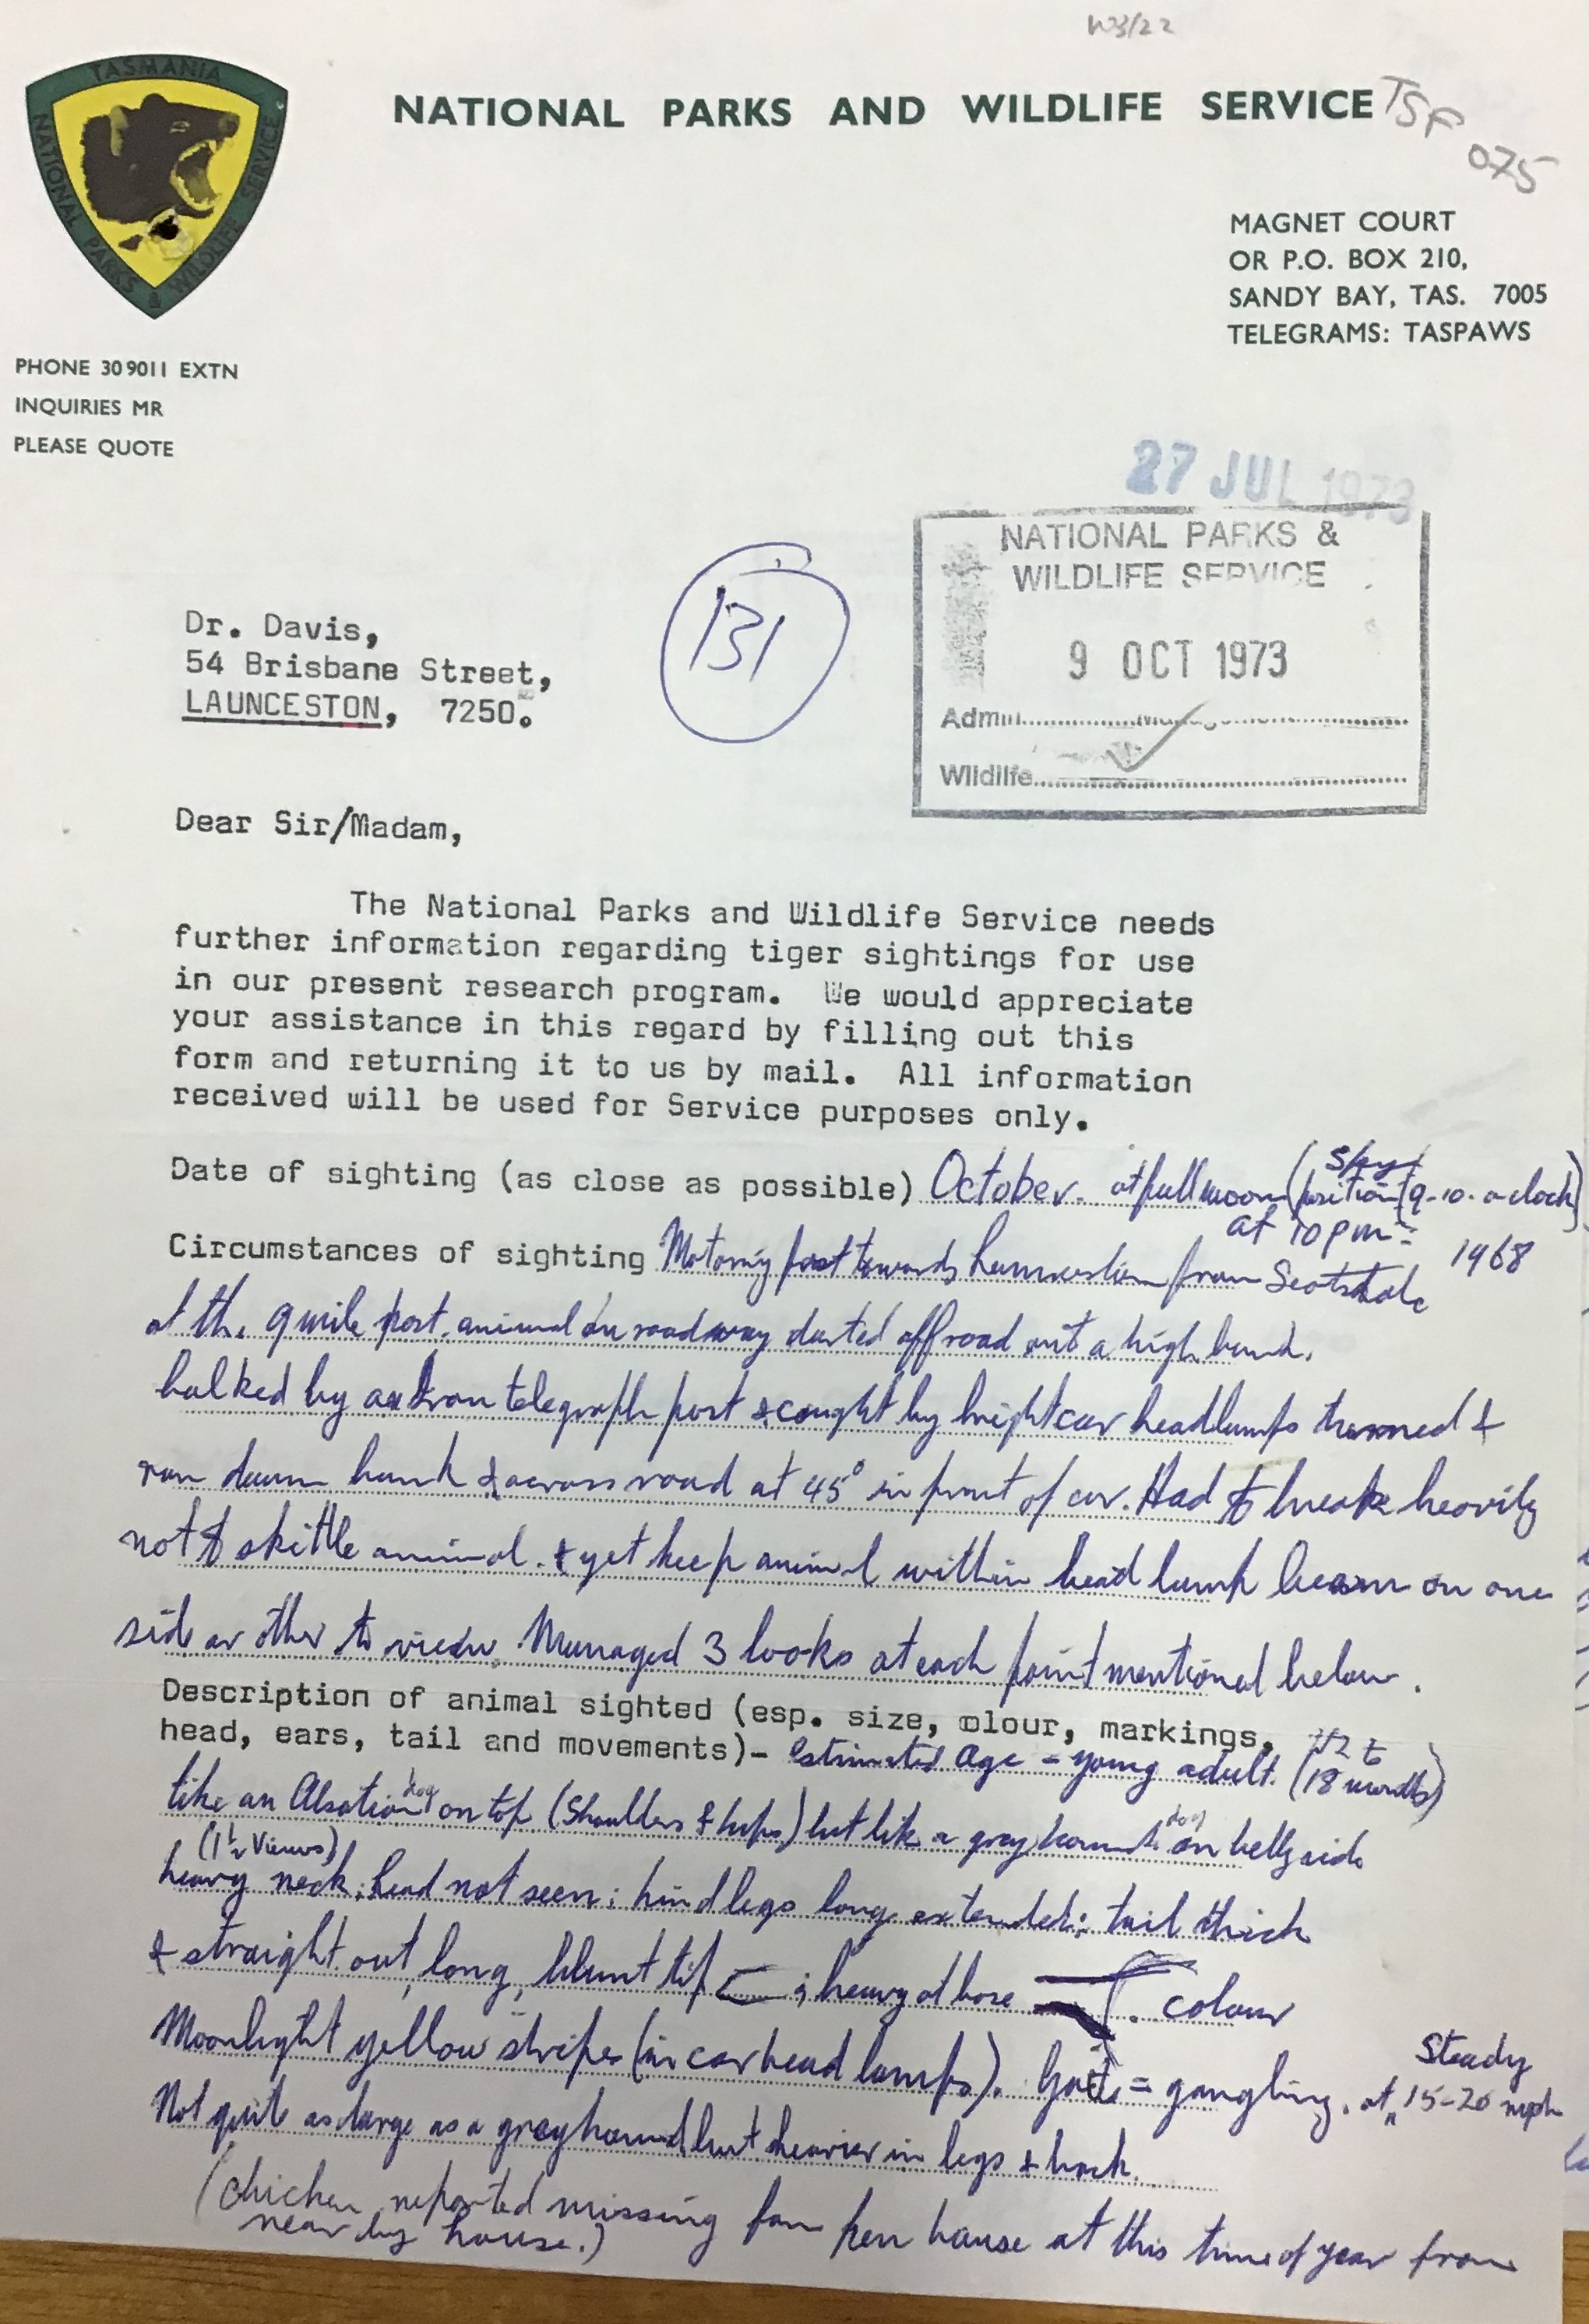 W3/22
TASMANIA
NATIONAL PARKS & WILDLIFE SERVICE
NATIONAL PARKS AND WILDLIFE SERVICE
TSF
075
MAGNET COURT
OR P.O. BOX 210,
SANDY BAY, TAS. 7005
TELEGRAMS: TASPAWS
PHONE 30 9011 EXTN
INQUIRIES MR
PLEASE QUOTE
27 JUL 1973
NATIONAL PARKS &
WILDLIFE SERVICE
9 OCT 1973
Admin
Wildlife
131
Dr. Davis,
54 Brisbane Street,
LAUNCESTON, 7250.
Dear Sir/Madam,
The National Parks and Wildlife Service needs
further information regarding tiger sightings for use
in our present research program. We would appreciate
your assistance in this regard by filling out this
form and returning it to us by mail. All information
received will be used for Service purposes only.
Date of sighting (as close as possible) October. at full moon (sky position 9-10. o clock)
at 10 pm 1968
Circumstances of sighting Motoring fast towards Launceston from Scottsdale
at the 9 mile post. animal on roadway darted off road onto a high bank.
balked by an Iron telegraph post & caught by bright car headlamps turned &
ran down bank & across road at 45° in front of car. Had to break heavily
not to skittle animal. & yet keep animal within head lamp beam on one
side or other to view. Managed 3 looks at each point mentioned below.
Description of animal sighted (esp. size, olour, markings,
head, ears, tail and movements)- Estimated Age = young adult. (12 to
18 months)
like an Alsation dog on top (shoulders & hips) but like a greyhound dog on belly side
(1½ Views)
heavy neck; head not seen; hind legs long extended; tail thick
& straight out, long, blunt tip ; heavy at base . colour
Moonlight yellow stripes (in car head lamps). Gait = gangling, at steady 15-20 mph
Not quite as large as a greyhound but heavier in legs & back.
(chicken reported missing from pen house at this time of year from
near by house.)